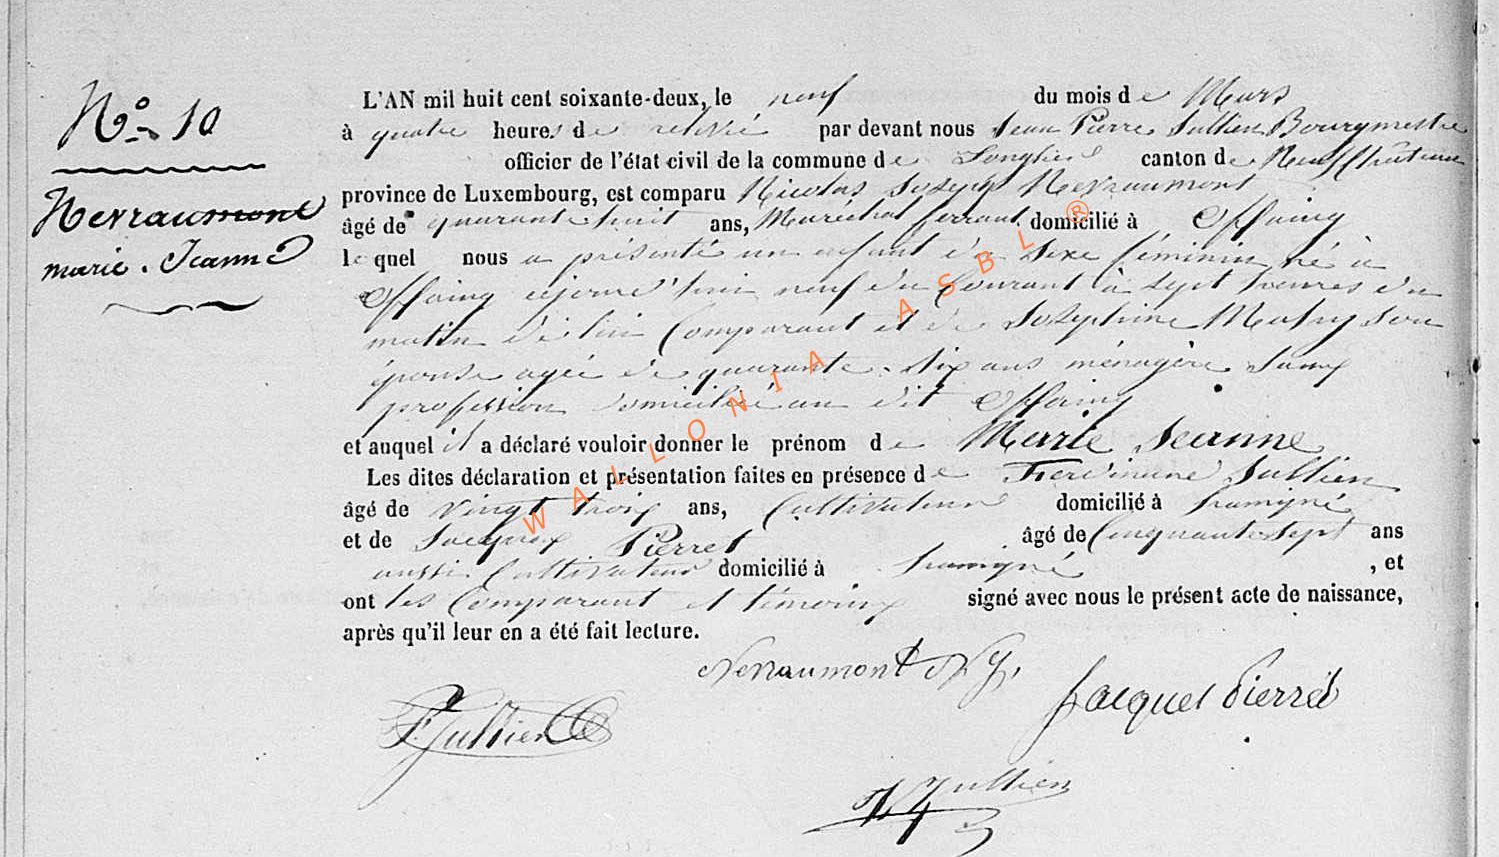 N.º 10
Nevraumont
marie. Jeanne
L'AN mil huit cent soixante-deux, le neuf du mois de Mars
à quatre heures de relevé par devant nous Jean Pierre Jullien Bourgmestre
officier de l'état civil de la commune de Longlier canton de Neufchâteau
province de Luxembourg, est comparu Nicolas Joseph Nevraumont
âgé de quarante huit ans, Maréchal ferrant domicilié à Offaing
le quel nous a présenté un enfant du sexe féminin né à
Offaing cejourd'hui neuf du Courant à sept heures du
matin de lui Comparant et de Joséphine Mahy son
épouse agée de quarante-six ans ménagère sans
profession domiciliée au dit Offaing
et auquel il a déclaré vouloir donner le prénom de Marie Jeanne
Les dites déclaration et présentation faites en présence de Ferdinand Jullien
âgé de vingt trois ans, Cultivateur domicilié à
et de Jacques Pierret âgé de Cinquante sept ans
aussi Cultivateur domicilié à , et
ont les Comparant et témoins signé avec nous le présent acte de naissance,
après qu'il leur en a été fait lecture.
Nevraumont N J.
Jacques Pierret
F. Jullien
Jullien
WALLONIA ASBL ®